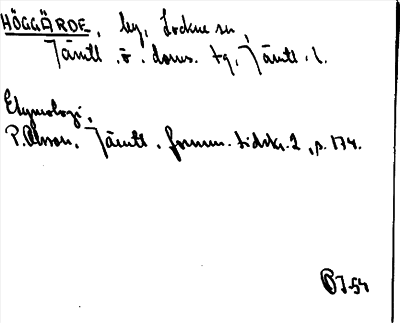 HÖGGÄRDE, by, Lockne sn,
Jämtl. ö. doms. tg, Jämtl. l.
Etymologi,
P. Olsson, Jämtl. fornm. tidskr. 2, s. 174.